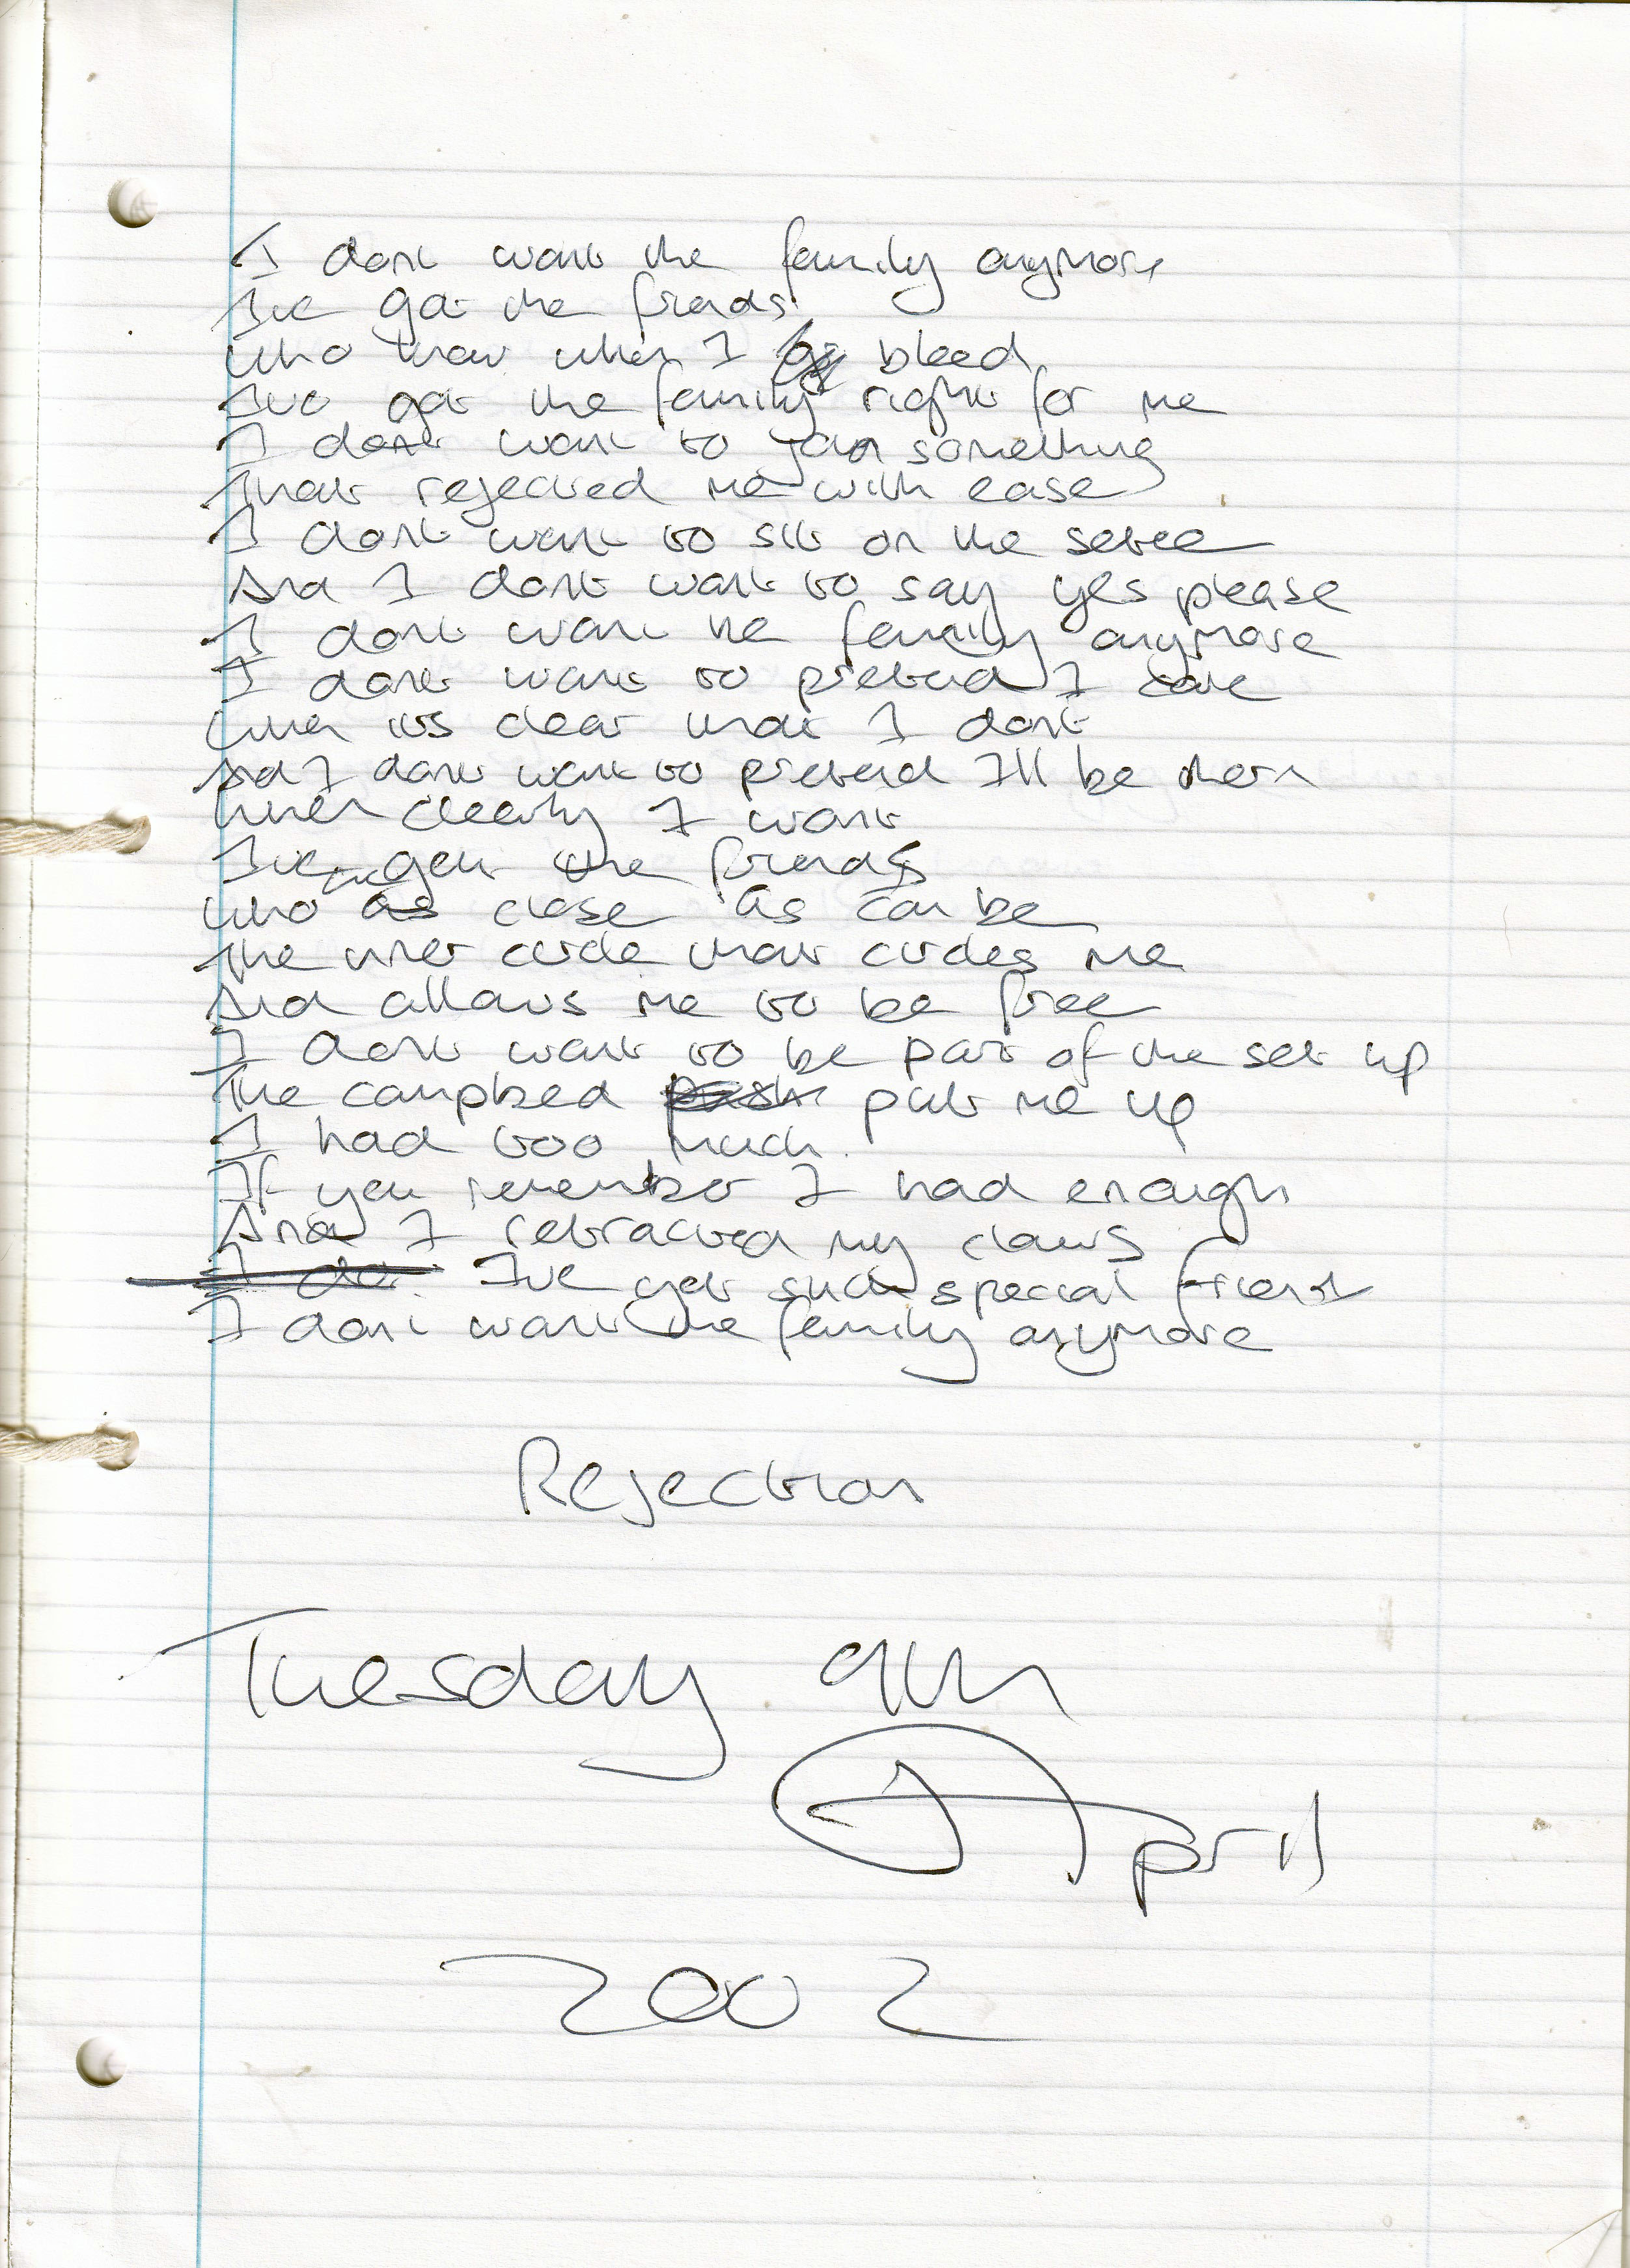 I dont want the family anymore
Ive got the friends
who know when I bleed
Ive got the family right for me
I dont want to join something
That rejected me with ease
I dont want to sit on the setee
And I dont want to say yes please
I dont want the family anymore
I dont want to pretend I care
When its clear that I dont
And I dont want to pretend Ill be there
When clearly I wont
Ive got the friends
who are close as can be
The inner circle that circles me
And allows me to be free
I dont want to be part of the set up
The campbed put me up
I had too much
If you remember I had enough
And I retracted my claws
Ive got such special friends
I dont want the family anymore
Rejection
Tuesday 9th
April
2002